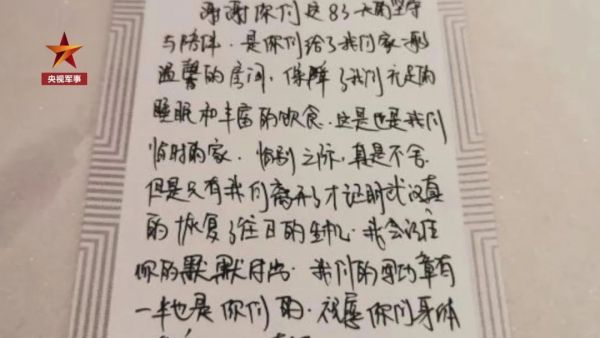 央视军事
谢谢你们这83天的坚守
与陪伴．是你们给了我们家一般
温馨的房间，保障了我们充足的
睡眠和丰富的饮食．这是也是我们
临时的家．临别之际，真是不舍．
但是只有我们离开了才证明武汉真
的恢复了往日的生机．我会记住
你的默默付出．我们的军功章有
一半也是你们的．祝愿你们身体